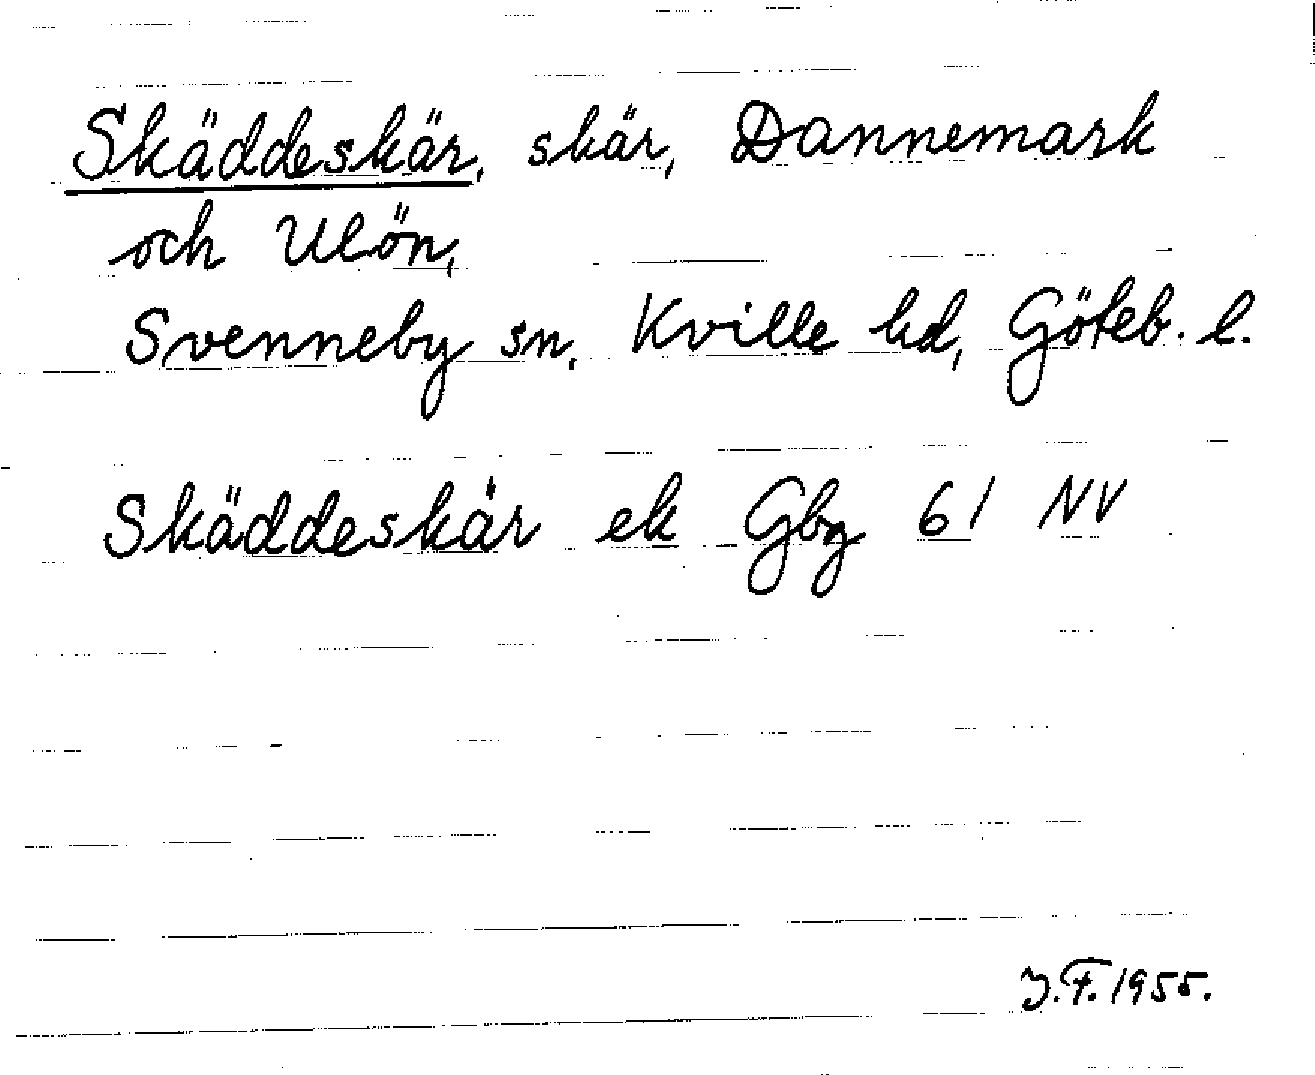 Skäddeskär, skär, Dannemark
och Ulön,
Svenneby sn, Kville hd, Göteb. l.
Skäddeskär ek Gbg 61 NV
J.F. 1955.